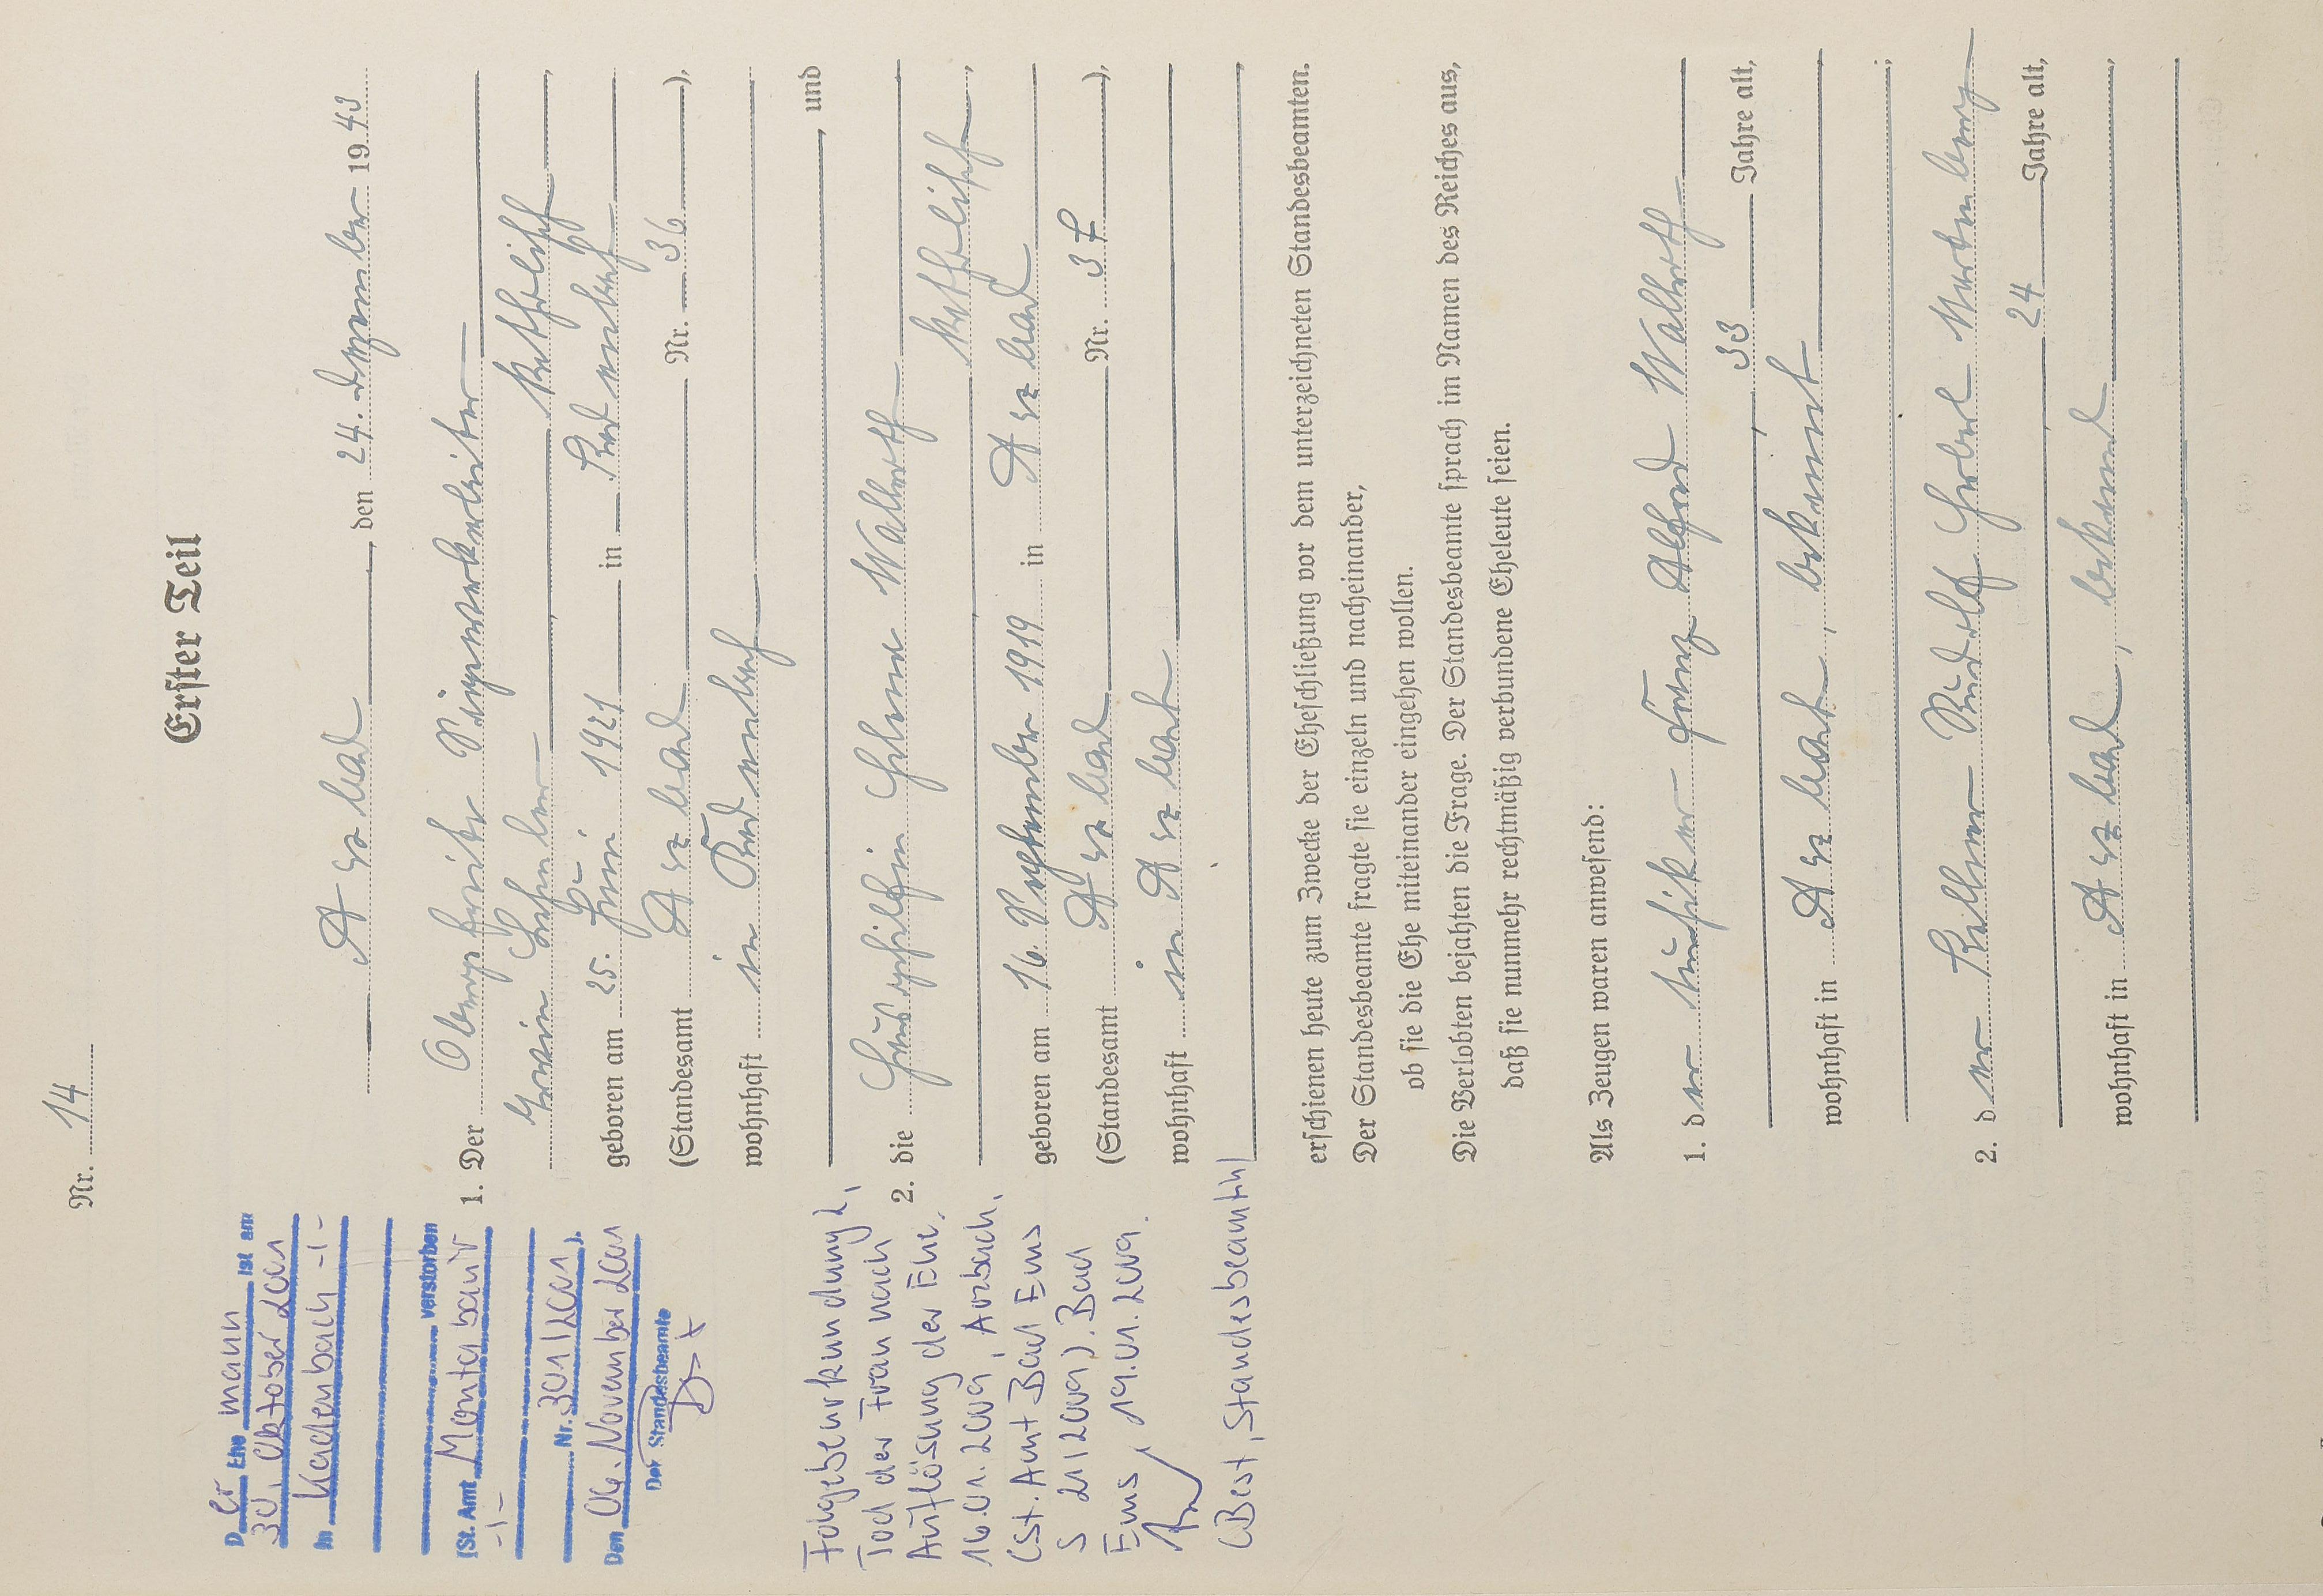 Nr. 14
Erster Teil
Arzbach, den 24. Dezember 1943
1. Der Obergefreite
Erwin katholisch
geboren am 25. Juni 1921 in Kadenbach
(Standesamt Arzbach Nr. 36),
wohnhaft in Kadenbach
, und
2. die Haushgehilfin Helene
katholisch,
geboren am 16. September 1919 in Arzbach
(Standesamt Arzbach Nr. 37),
wohnhaft in Arzbach
erschienen heute zum Zwecke der Eheschließung vor dem unterzeichneten Standesbeamten.
Der Standesbeamte fragte sie einzeln und nacheinander,
ob sie die Ehe miteinander eingehen wollen.
Die Verlobten bejahten die Frage. Der Standesbeamte sprach im Namen des Reiches aus,
daß sie nunmehr rechtmäßig verbundene Eheleute seien.
Als Zeugen waren anwesend:
1. der Musiker Franz Alfred
33 Jahre alt,
wohnhaft in Arzbach, bekannt
;
2. der Rudolf
24 Jahre alt,
wohnhaft in Arzbach, bekannt,
Der Ehe mann ist am
30. Oktober 2001
in Kadenbach -/-
verstorben
(St. Amt Montabaur
-/-
Nr. 301/2001).
Den 06. November 2001
Der Standesbeamte
Folgebeurkundung 2,
Tod der Frau nach
Auflösung der Ehe:
16.01.2009, Arzbach,
(St. Amt Bad Ems
S 21/2009). Bad
Ems, 19.01.2009.
(Best, Standesbeamtin)